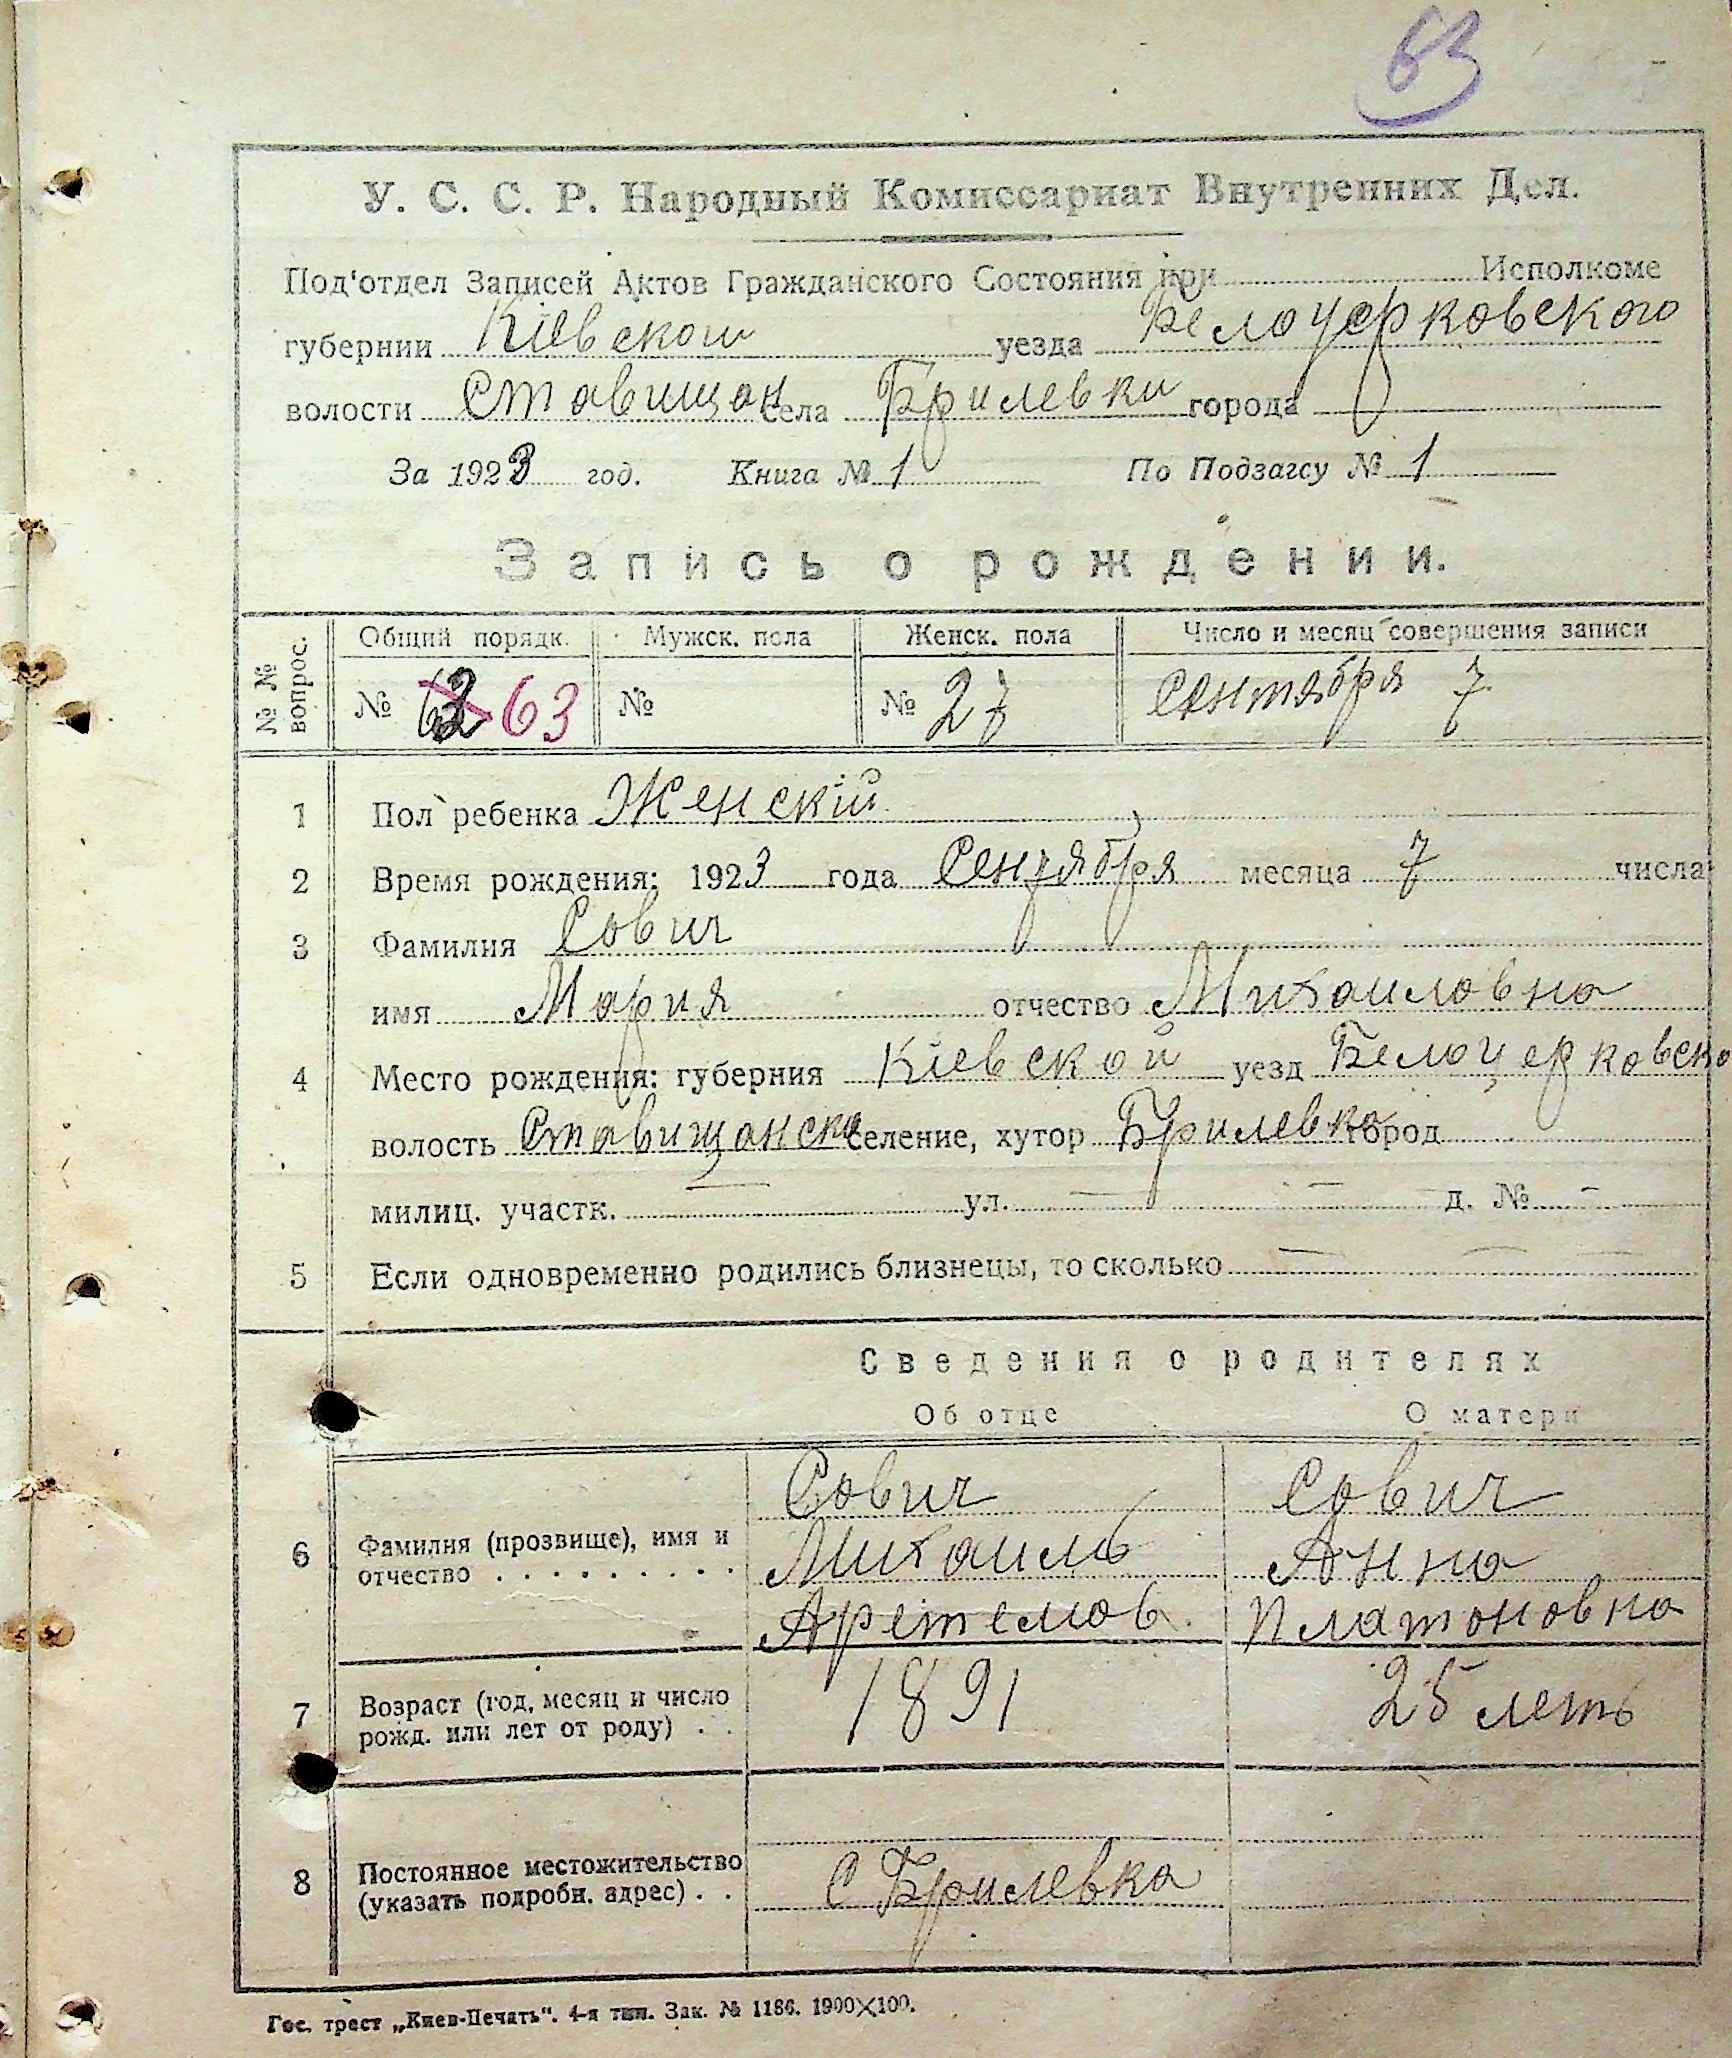 63
У. С. С. Р. Народный Комиссариат Внутренних Дел.
Под'отдел Записей Актов Гражданского Состояния при Исполкоме
губернии Кіевской уезда Белоцерковского
волости Ставищан села Брилевки города
За 1923 год. Книга № 1 По Подзагсу № 1
Запись о рождении.
№ № вопрос. Общий порядк. Мужск. пола Женск. пола Число и месяц совершения записи
№ 62 63 № № 27 Сентября 7
1 Пол ребенка Женскій
2 Время рождения: 1923 года Сентября месяца 7 числа
3 Фамилия Сович
имя Мария отчество Михаиловна
4 Место рождения: губерния Кіевской уезд Белоцерковско
волость Ставищанско селение, хутор Брилевка город
милиц. участк. — ул. — — д. № -
5 Если одновременно родились близнецы, то сколько — — —
Сведения о родителях
Об отце О матери
Сович Сович
6 Фамилия (прозвище), имя и отчество . . . . . . . . . Михаилъ Анна
Аретемов. Платоновна
7 Возраст (год, месяц и число рожд. или лет от роду) . . 1891 25 летъ
8 Постоянное местожительство (указать подробн. адрес) . . С Брилевка
Гос. трест „Киев-Печать". 4-я тип. Зак. № 1186. 1900×100.